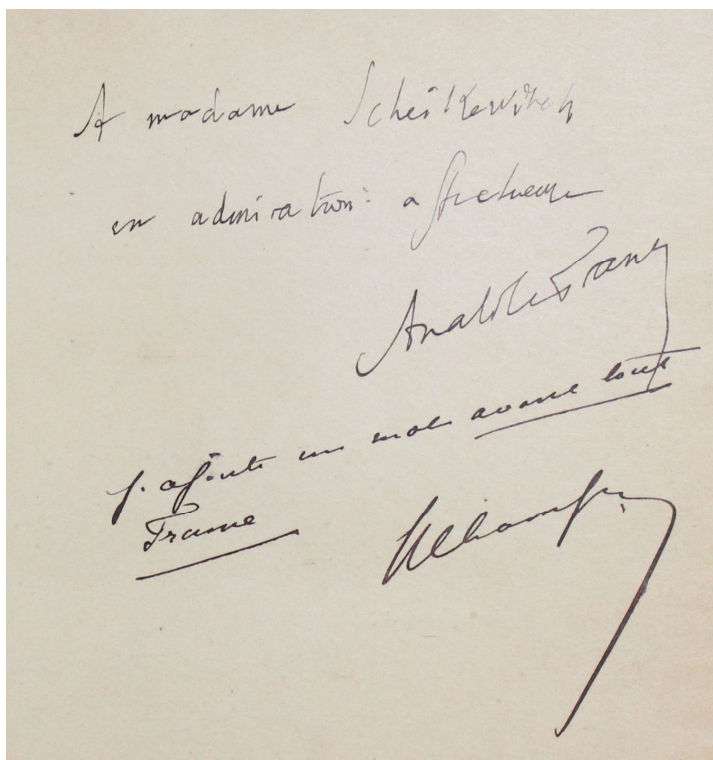 A madame Scheikewitch
en admiration affectueuse
Anatole France
J'ajoute un mot avant tout
France